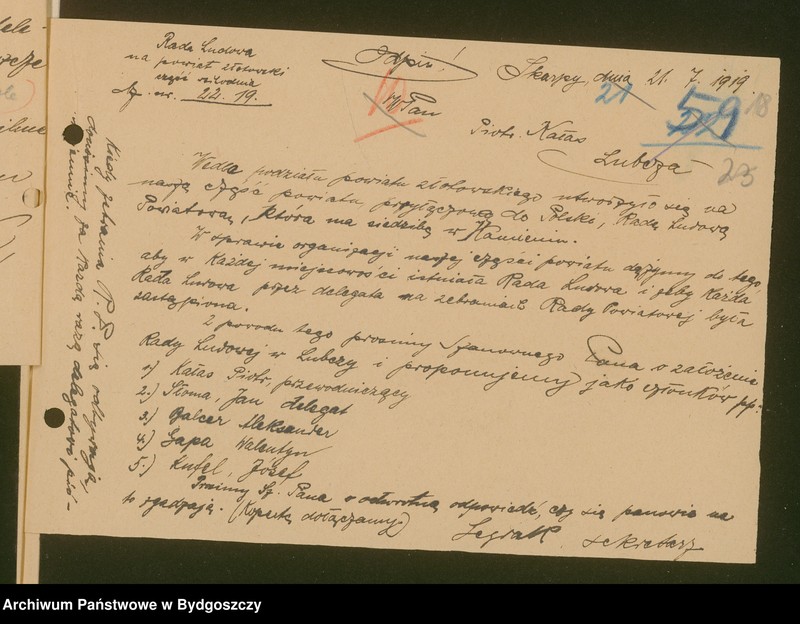 Rada Ludowa
na powiat złotowski
część zachodnia
nr. 22. 19.
Odpis!
Skarpy, dnia 21. 7. 1919.
21
59
18
10
W Pan
Piotr. Kałas
Lubcza
25
Wedle podziału powiatu złotowskiego utworzyło się na
naszą część powiatu, przyłączoną do Polski, Radę Ludową
Powiatową, która ma siedzibę w Kamieniu.
W sprawie organizacji naszej części powiatu dążymy do tego,
aby w każdej miejscowości istniała Rada Ludowa i żeby każda
Rada Ludowa przez delegata na zebraniach Rady Powiatowej była
zastąpiona.
Z powodu tego prosimy Szanownego Pana o założenie
Rady Ludowej w Lubczy i proponujemy jako członków pp:
1) Kałas Piotr, przewodniczący
2.) Słoma, Jan delegat
3.) Balcer Aleksander
4.) Gapa Walentyn
5.) Kufel, Józef
Prosimy Sz. Pana o odwrotną odpowiedź, czy się panowie na
to zgadzają. (Kopertę dołączamy.)
sekretarz
Kiedy zebrania P. R. się odbywają,
na każdą razą delegatowi piś-
miennie.
Archiwum Państwowe w Bydgoszczy